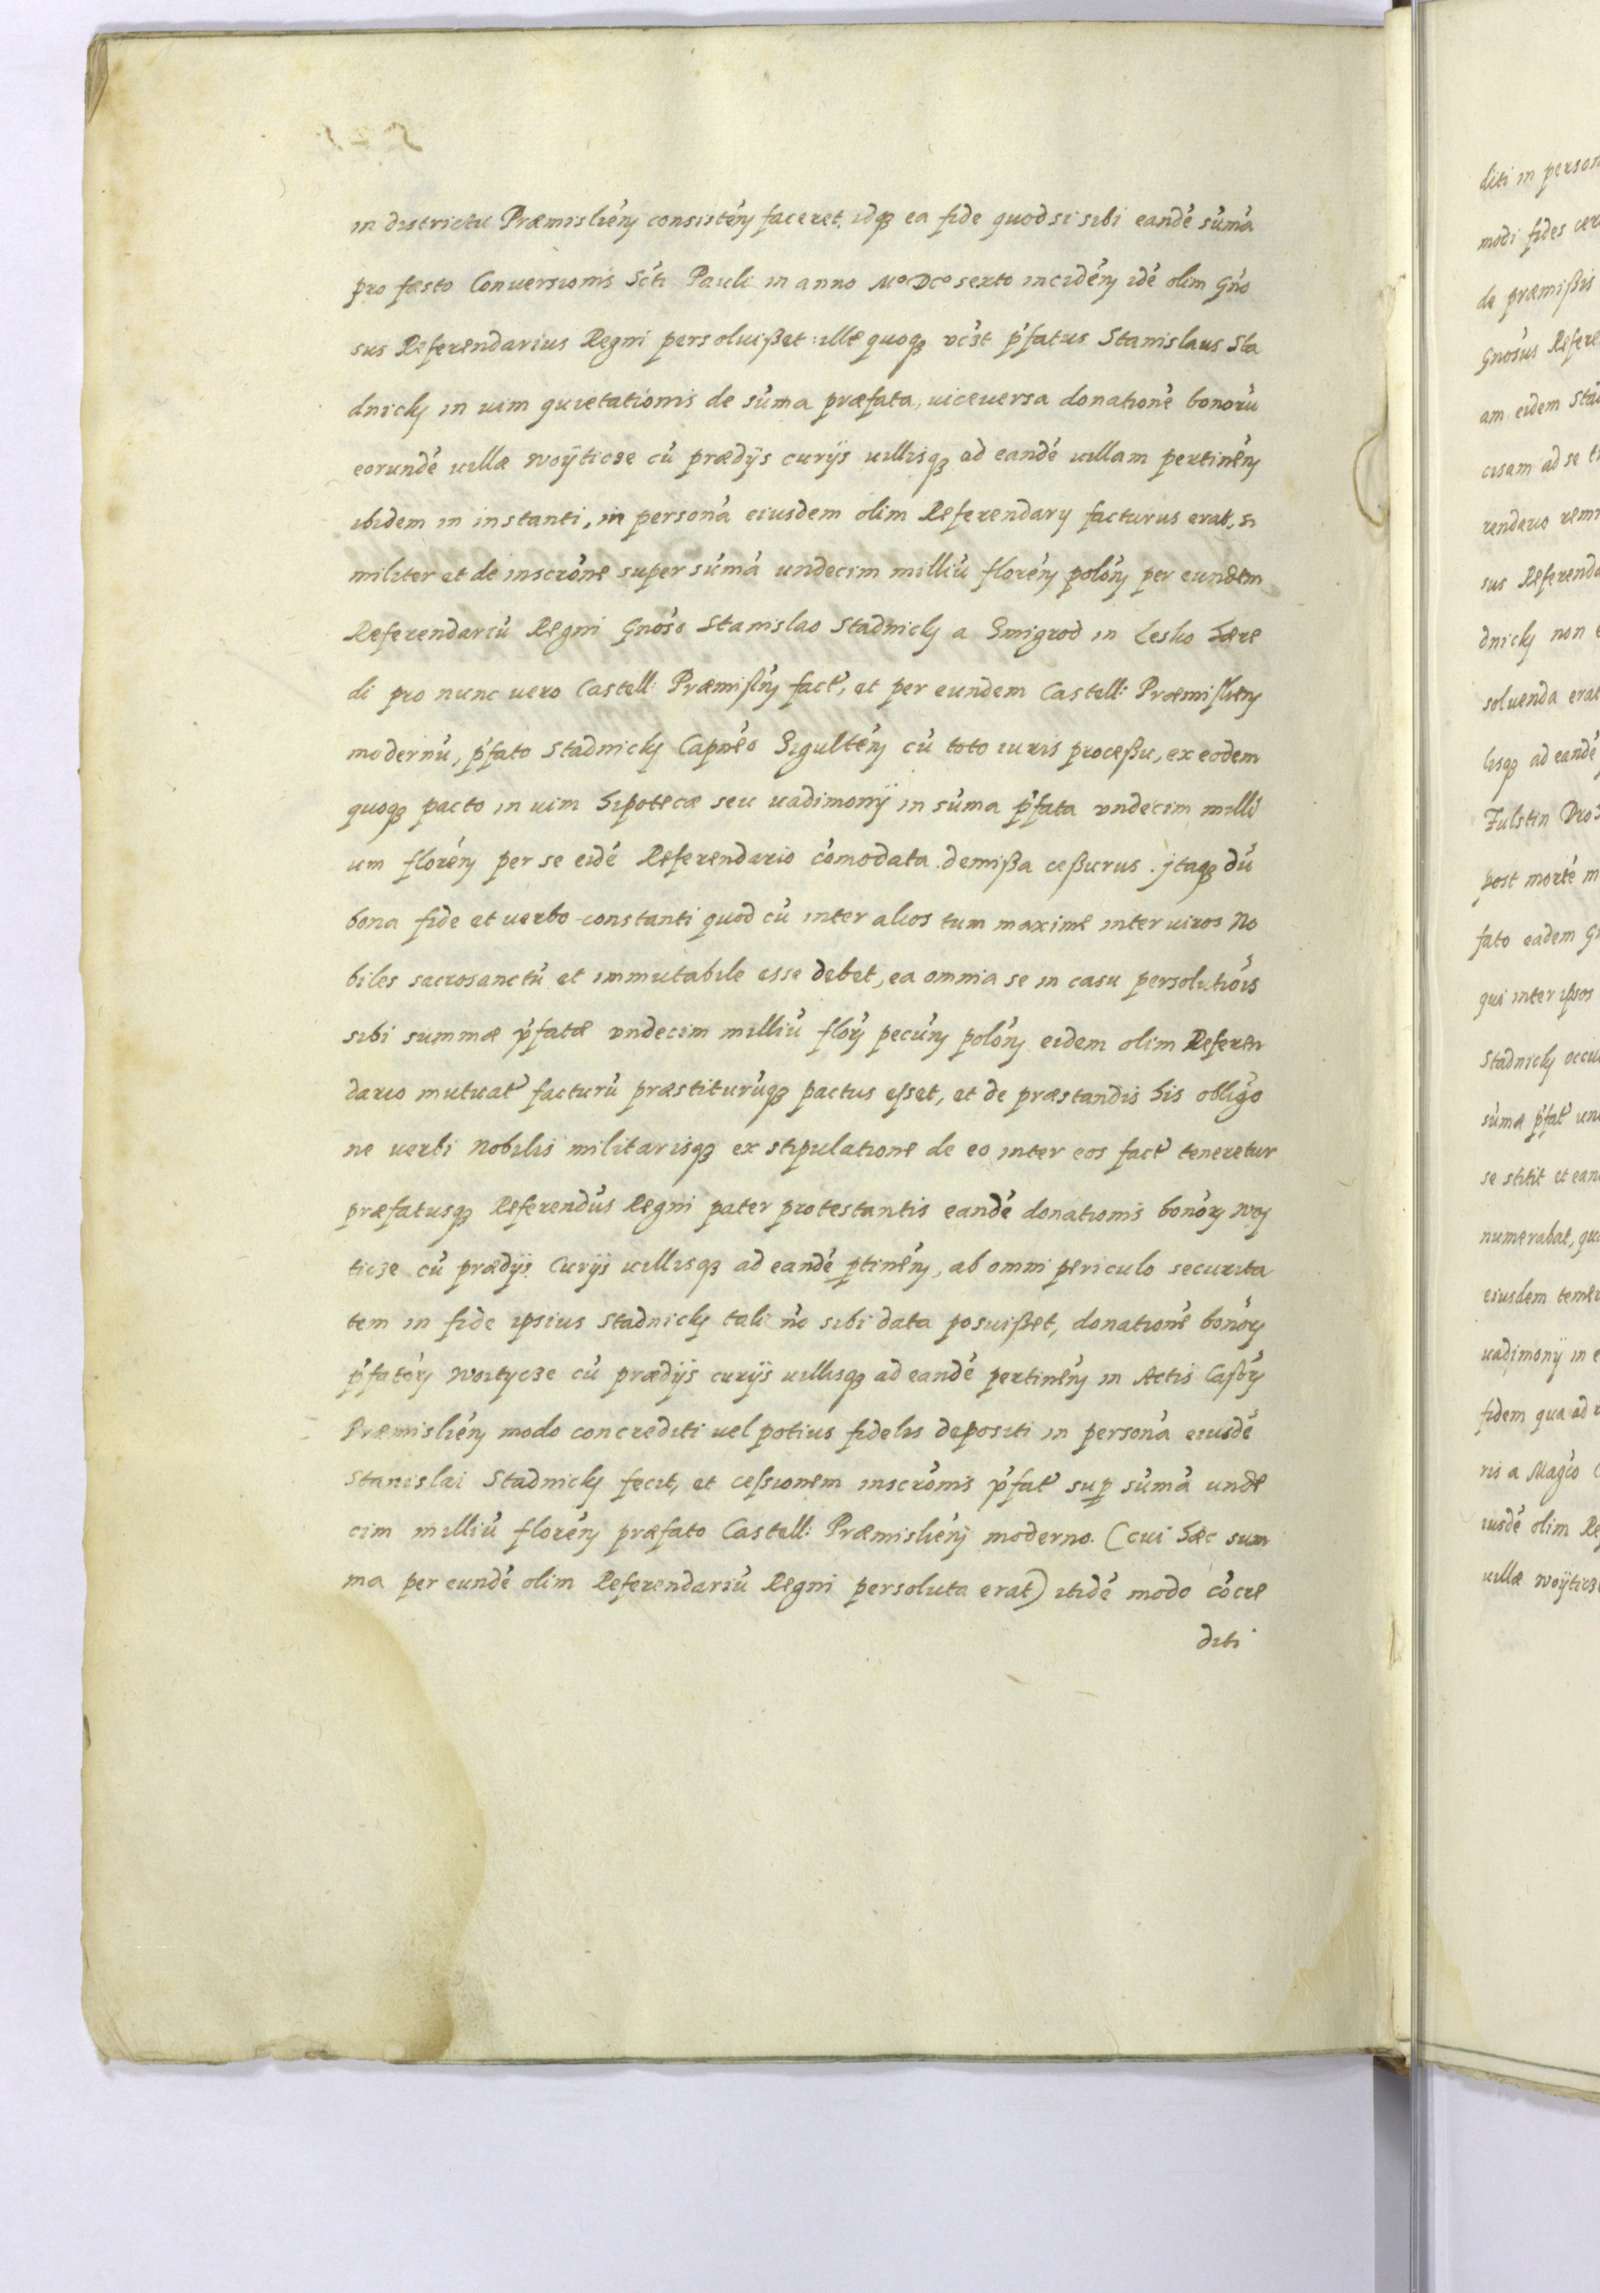 in districtu Præmislień consisteń faceret, idqꝫ ea fide quod si sibi eandē sūmā
pro fæsto Conuersionis Scti Pauli in anno Mº Dcº sexto incideń idē olim Gńo
sus Referendarius Regni persoluißet: ille quoqꝫ vczt pʳfatus Stanislaus Sta
dnicky in uim quietationis de sūma præfata, uiceuersa donationē bonorū
eorundē uillæ Woÿticze cū prædÿs curÿs uillisqꝫ ad eandē uillam pertineń
ibidem in instanti, in personā eiusdem olim Referendary facturus erat, si
militer et de inscrōne super sūmā undecim milliū floreń poloń per eundem
Referendariū Regni Gnōso Stanislao Stadnicky a Smigrod in Lesko hære
di pro nunc uero Castell: Præmisłń fact, et per eundem Castell: Præmislień
modernū, pʳfato Stadnicky Capneo Sigulteń cū toto iuris proceßu, ex eodem
quoqꝫ pacto in uim hipotecæ seu uadimonÿ in sūma pʳfata vndecim milli
um floreń per se eidē Referendario cōmodata demißa ceßurus. jtaqꝫ dū
bona fide et uerbo constanti quod cū inter alios tum maxime inter uiros No
biles sacrosanctū et immutabile esse debet, ea omnia se in casu persolutiōis
sibi summæ pʳfatæ vndecim milliū floŕ pecuń poloń eidem olim Referen
dario mutuat facturū præstiturūqꝫ pactus esset, et de præstandis his obligō
ne uerbi Nobilis militarisqꝫ ex stipulatione de eo inter eos fact teneretur
præfatusqꝫ Referendūs Regni pater protestantis eandē donationis bonoŕ Woy
ticze cū prædÿs Curÿs uillisqꝫ ad eandē ꝑtineń, ab omni periculo securita
tem in fide ipsius Stadnicky tali mō sibi data posuißet, donationē bonoŕ
pʳfatoŕ Woitycze cū prædÿs curÿs uillisqꝫ ad eandē pertineń in Actis Castŕ
Præmislień modo concrediti uel potius fidelis depositi in personā eiusdē
Stanislai Stadnicky fecit, et cessionem inscrōnis pʳfat suꝑ sūmā unde
cim milliū floreń præfato Castell: Præmislień moderno. (cui hæc sum
ma per eundē olim Referendariū Regni persoluta erat) itidē modo cōcre
diti
diti in person
modi fides
de præmißis
Gnosus Refere
am eidem Sta
cisam ad se
rendario remi
sus Referenda
dnicky non
soluenda erat
lisqꝫ ad eandē
Fulstin
post mortē m
fato eadem
qui inter ipsos
Stadnicky
sūmæ pʳfat un
se stitit et ean
numerabat, qu
eiusdem
uadimonÿ in
fidem qua ad
nis a Magco
iusdē olim Re
uillæ Woÿticz